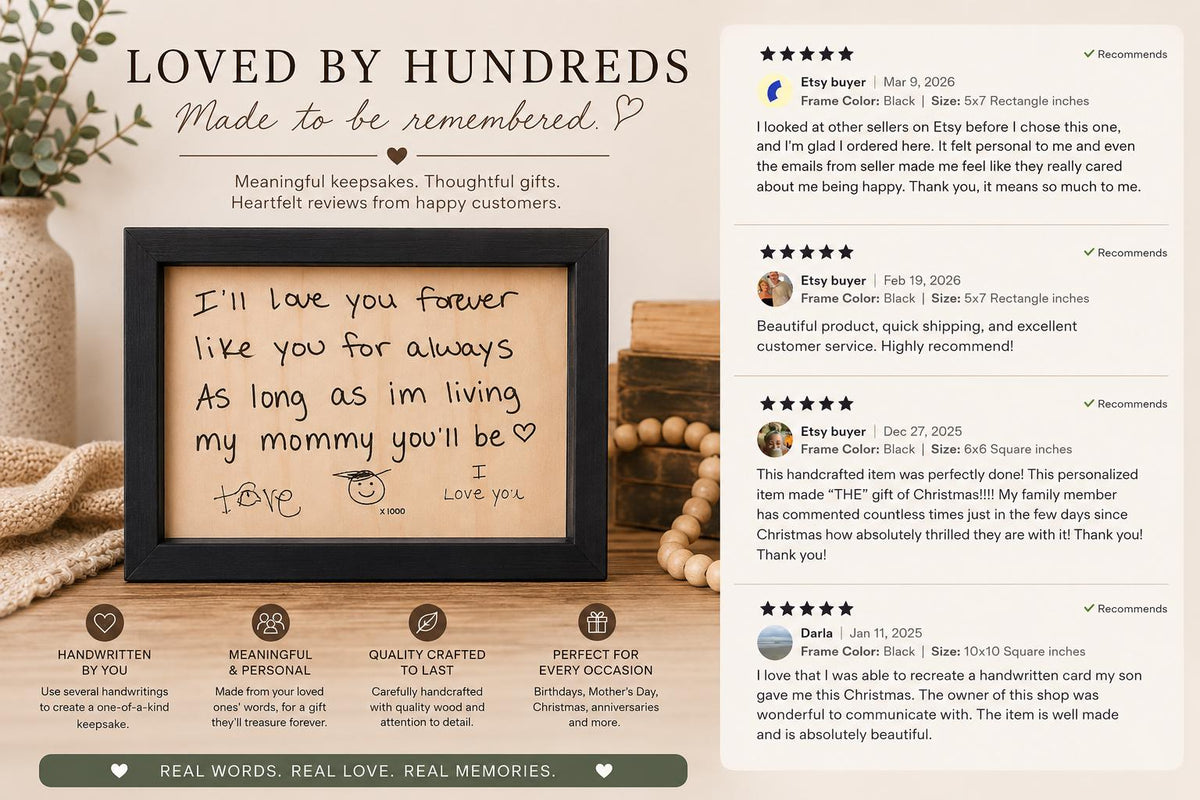 LOVED BY HUNDREDS
Made to be remembered.
Meaningful keepsakes. Thoughtful gifts.
Heartfelt reviews from happy customers.
I'll love you forever
like you for always
As long as im living
my mommy you'll be
love
x1000
I
Love you
HANDWRITTEN
BY YOU
Use several handwritings
to create a one-of-a-kind
keepsake.
MEANINGFUL
& PERSONAL
Made from your loved
ones' words, for a gift
they'll treasure forever.
QUALITY CRAFTED
TO LAST
Carefully handcrafted
with quality wood and
attention to detail.
PERFECT FOR
EVERY OCCASION
Birthdays, Mother's Day,
Christmas, anniversaries
and more.
REAL WORDS. REAL LOVE. REAL MEMORIES.
Recommends
Etsy buyer | Mar 9, 2026
Frame Color: Black | Size: 5x7 Rectangle inches
I looked at other sellers on Etsy before I chose this one,
and I'm glad I ordered here. It felt personal to me and even
the emails from seller made me feel like they really cared
about me being happy. Thank you, it means so much to me.
Recommends
Etsy buyer | Feb 19, 2026
Frame Color: Black | Size: 5x7 Rectangle inches
Beautiful product, quick shipping, and excellent
customer service. Highly recommend!
Recommends
Etsy buyer | Dec 27, 2025
Frame Color: Black | Size: 6x6 Square inches
This handcrafted item was perfectly done! This personalized
item made “THE” gift of Christmas!!!! My family member
has commented countless times just in the few days since
Christmas how absolutely thrilled they are with it! Thank you!
Thank you!
Recommends
Darla | Jan 11, 2025
Frame Color: Black | Size: 10x10 Square inches
I love that I was able to recreate a handwritten card my son
gave me this Christmas. The owner of this shop was
wonderful to communicate with. The item is well made
and is absolutely beautiful.